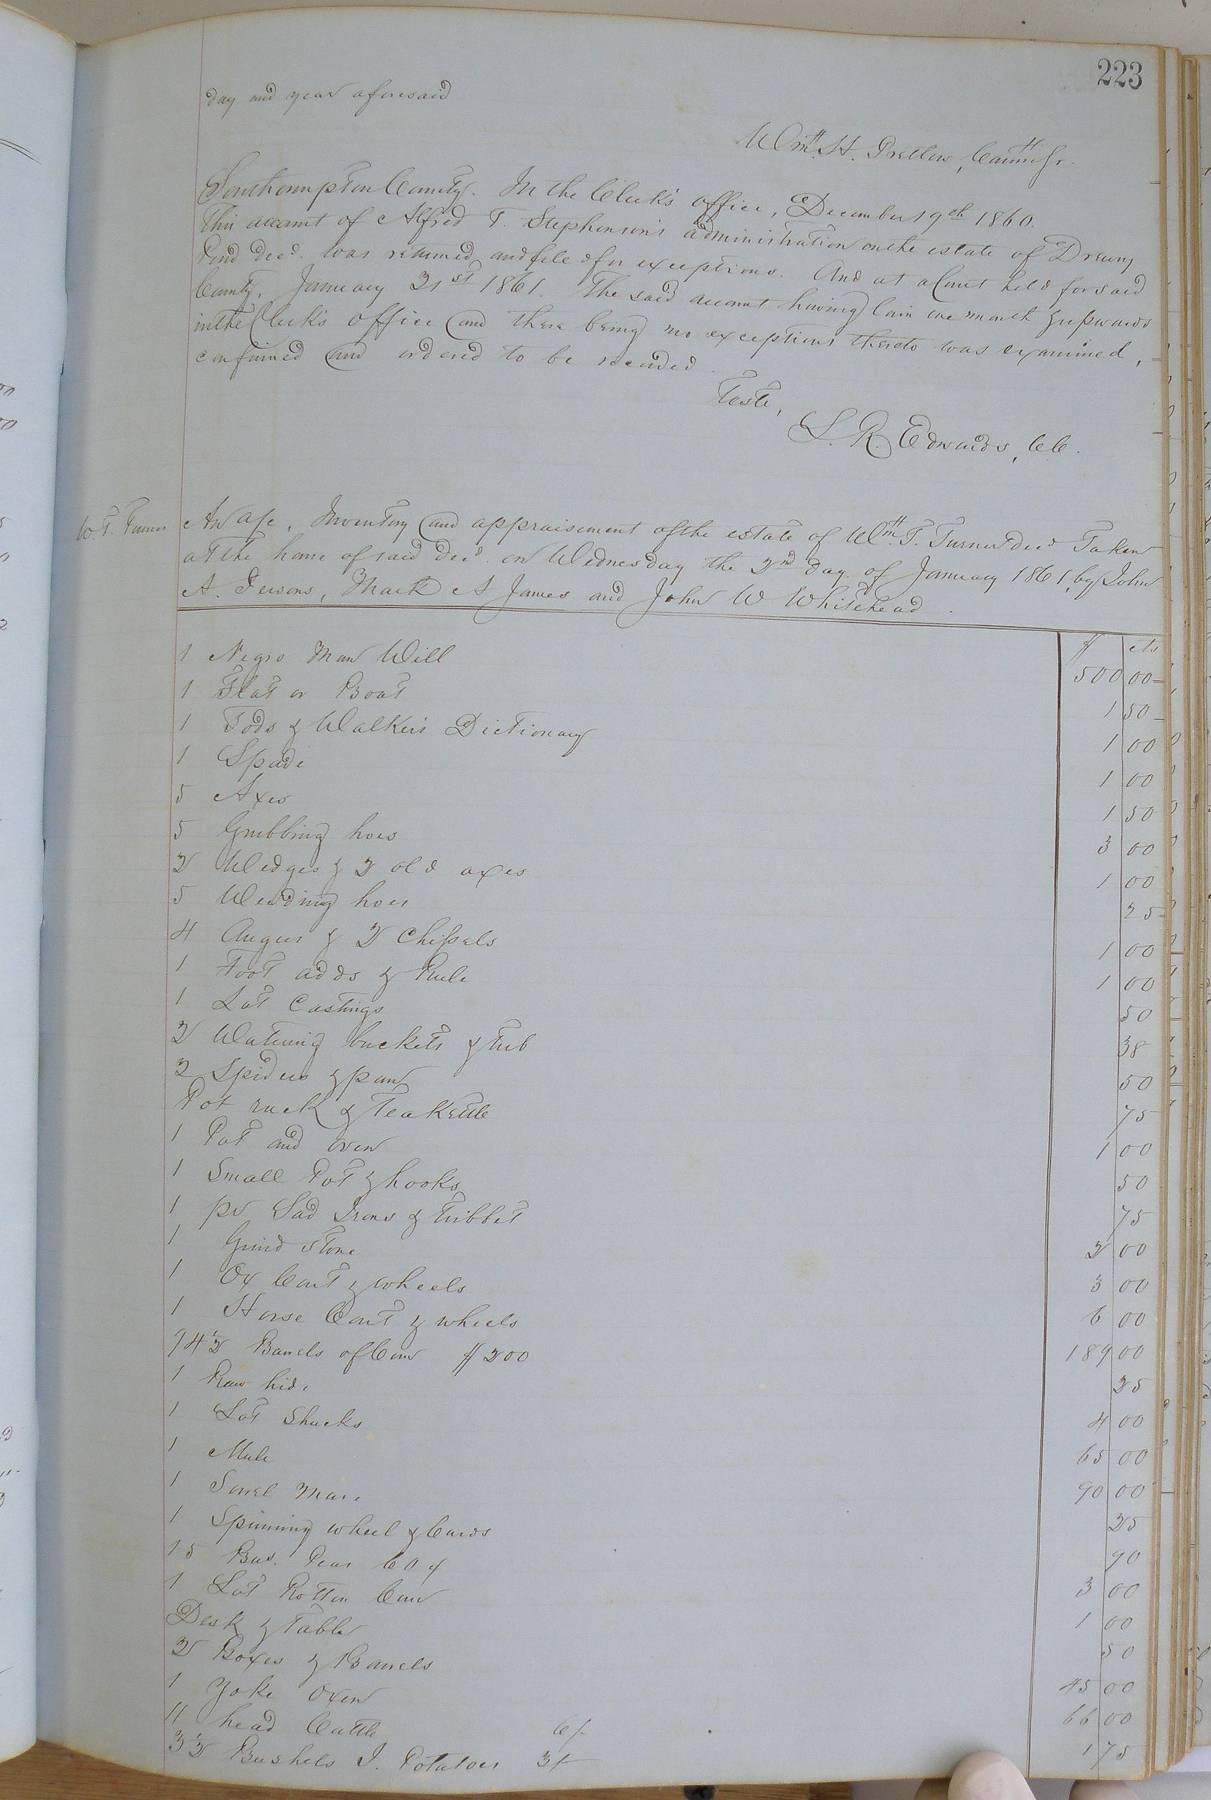 223
day and year aforesaid
Wm. H. Pretlow, Comr
Southampton County. In the Clerk's office, December 19th 1860.
This account of Alfred T. Stephenson's administration on the estate of Drewry
Pond decd. was returned, and filed for exceptions. And at a Court held for said
County, January 21st 1861. The said account having lain one month & upwards
in the Clerk's office and there being no exceptions thereto was examined,
confirmed and ordered to be recorded.
Teste,
L. R. Edwards, CC.
W. T. Turner
An Inventory and appraisement of the estate of Wm. T. Turner decd Taken
at the home of said decd. on Wednesday the 2nd day of January 1861, by John
A. Persons, Mark A James and John W Whitehead.
$ cts
1 Negro Man Will 500 00
1 Flat or Boat 1 50
1 Tods & Walker's Dictionary 1 00
1 Spade 1 00
5 Axes 1 50
5 Grubbing hoes 3 00
2 Wedges & 2 old axes 1 00
5 Weeding hoes 25
4 Augers & 2 Chissels 1 00
1 Foot adds & Rule 1 00
1 Lot Castings 50
2 Watering buckets & tub 38
2 Spiders & pan 50
Pot rack & Teakettle 75
1 Pot and oven 1 00
1 Small Pot & hooks 50
1 pr Sad Irons & tribbet 75
1 Grind stone 2 00
1 Ox Cart & wheels 3 00
1 Horse Cart & wheels 6 00
94½ Barrels of Corn $200 189 00
1 Raw hide 25
1 Lot Shucks 4 00
1 Mule 65 00
1 Sorrel Mare 90 00
1 Spinning wheel & Cards 25
Bus. Peas 60 90
1 Lot Rotten Corn 3 00
Desk & Table 1 00
2 Boxes & Barrels 50
1 Yoke Oxen 45 00
11 head Cattle 6/ 66 00
3½ Bushels I. Potatoes 3/ 1 75